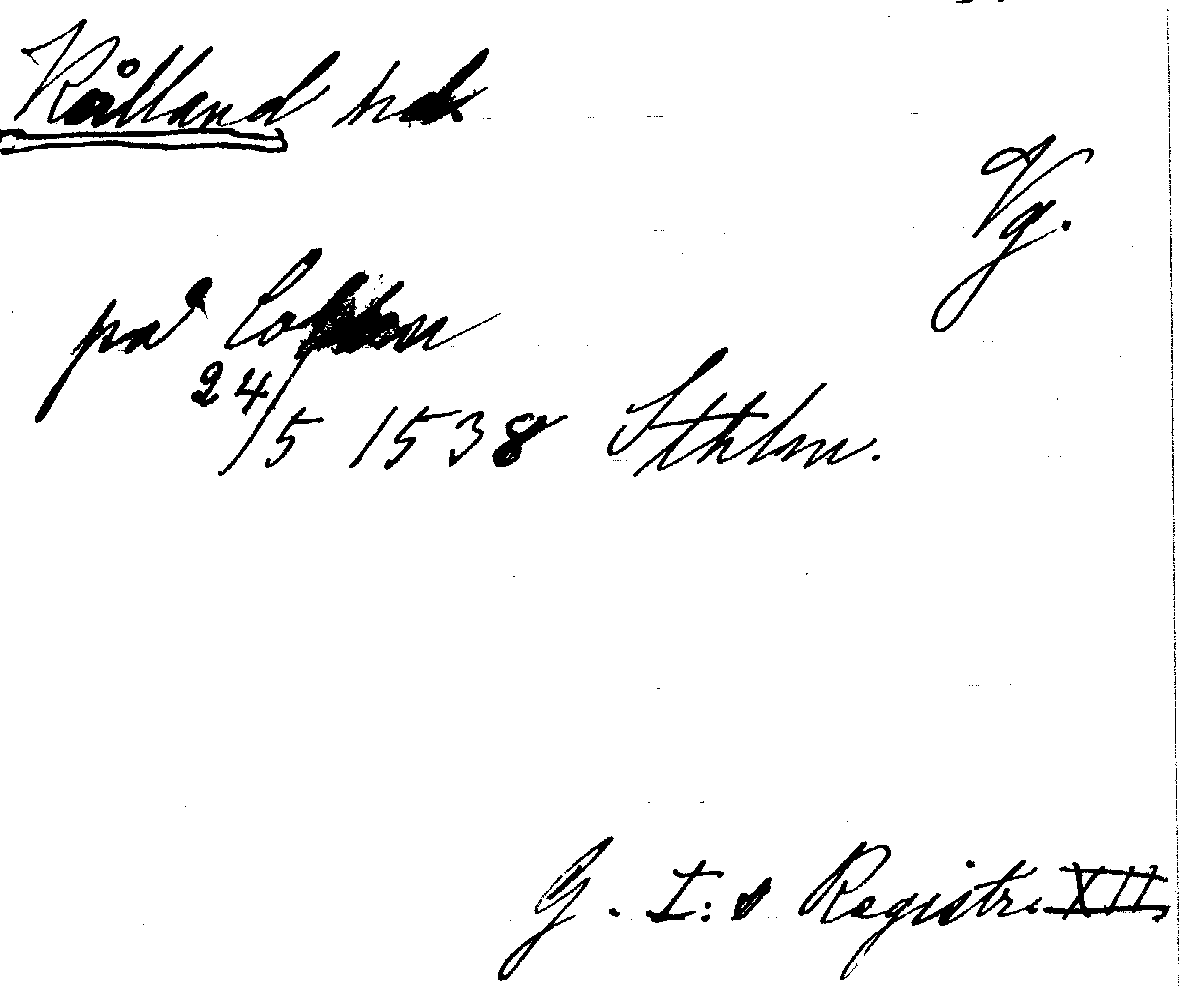 Kålland hd
Vg.
på
24/5 1538 Sthlm.
G. I:s Registr. XII